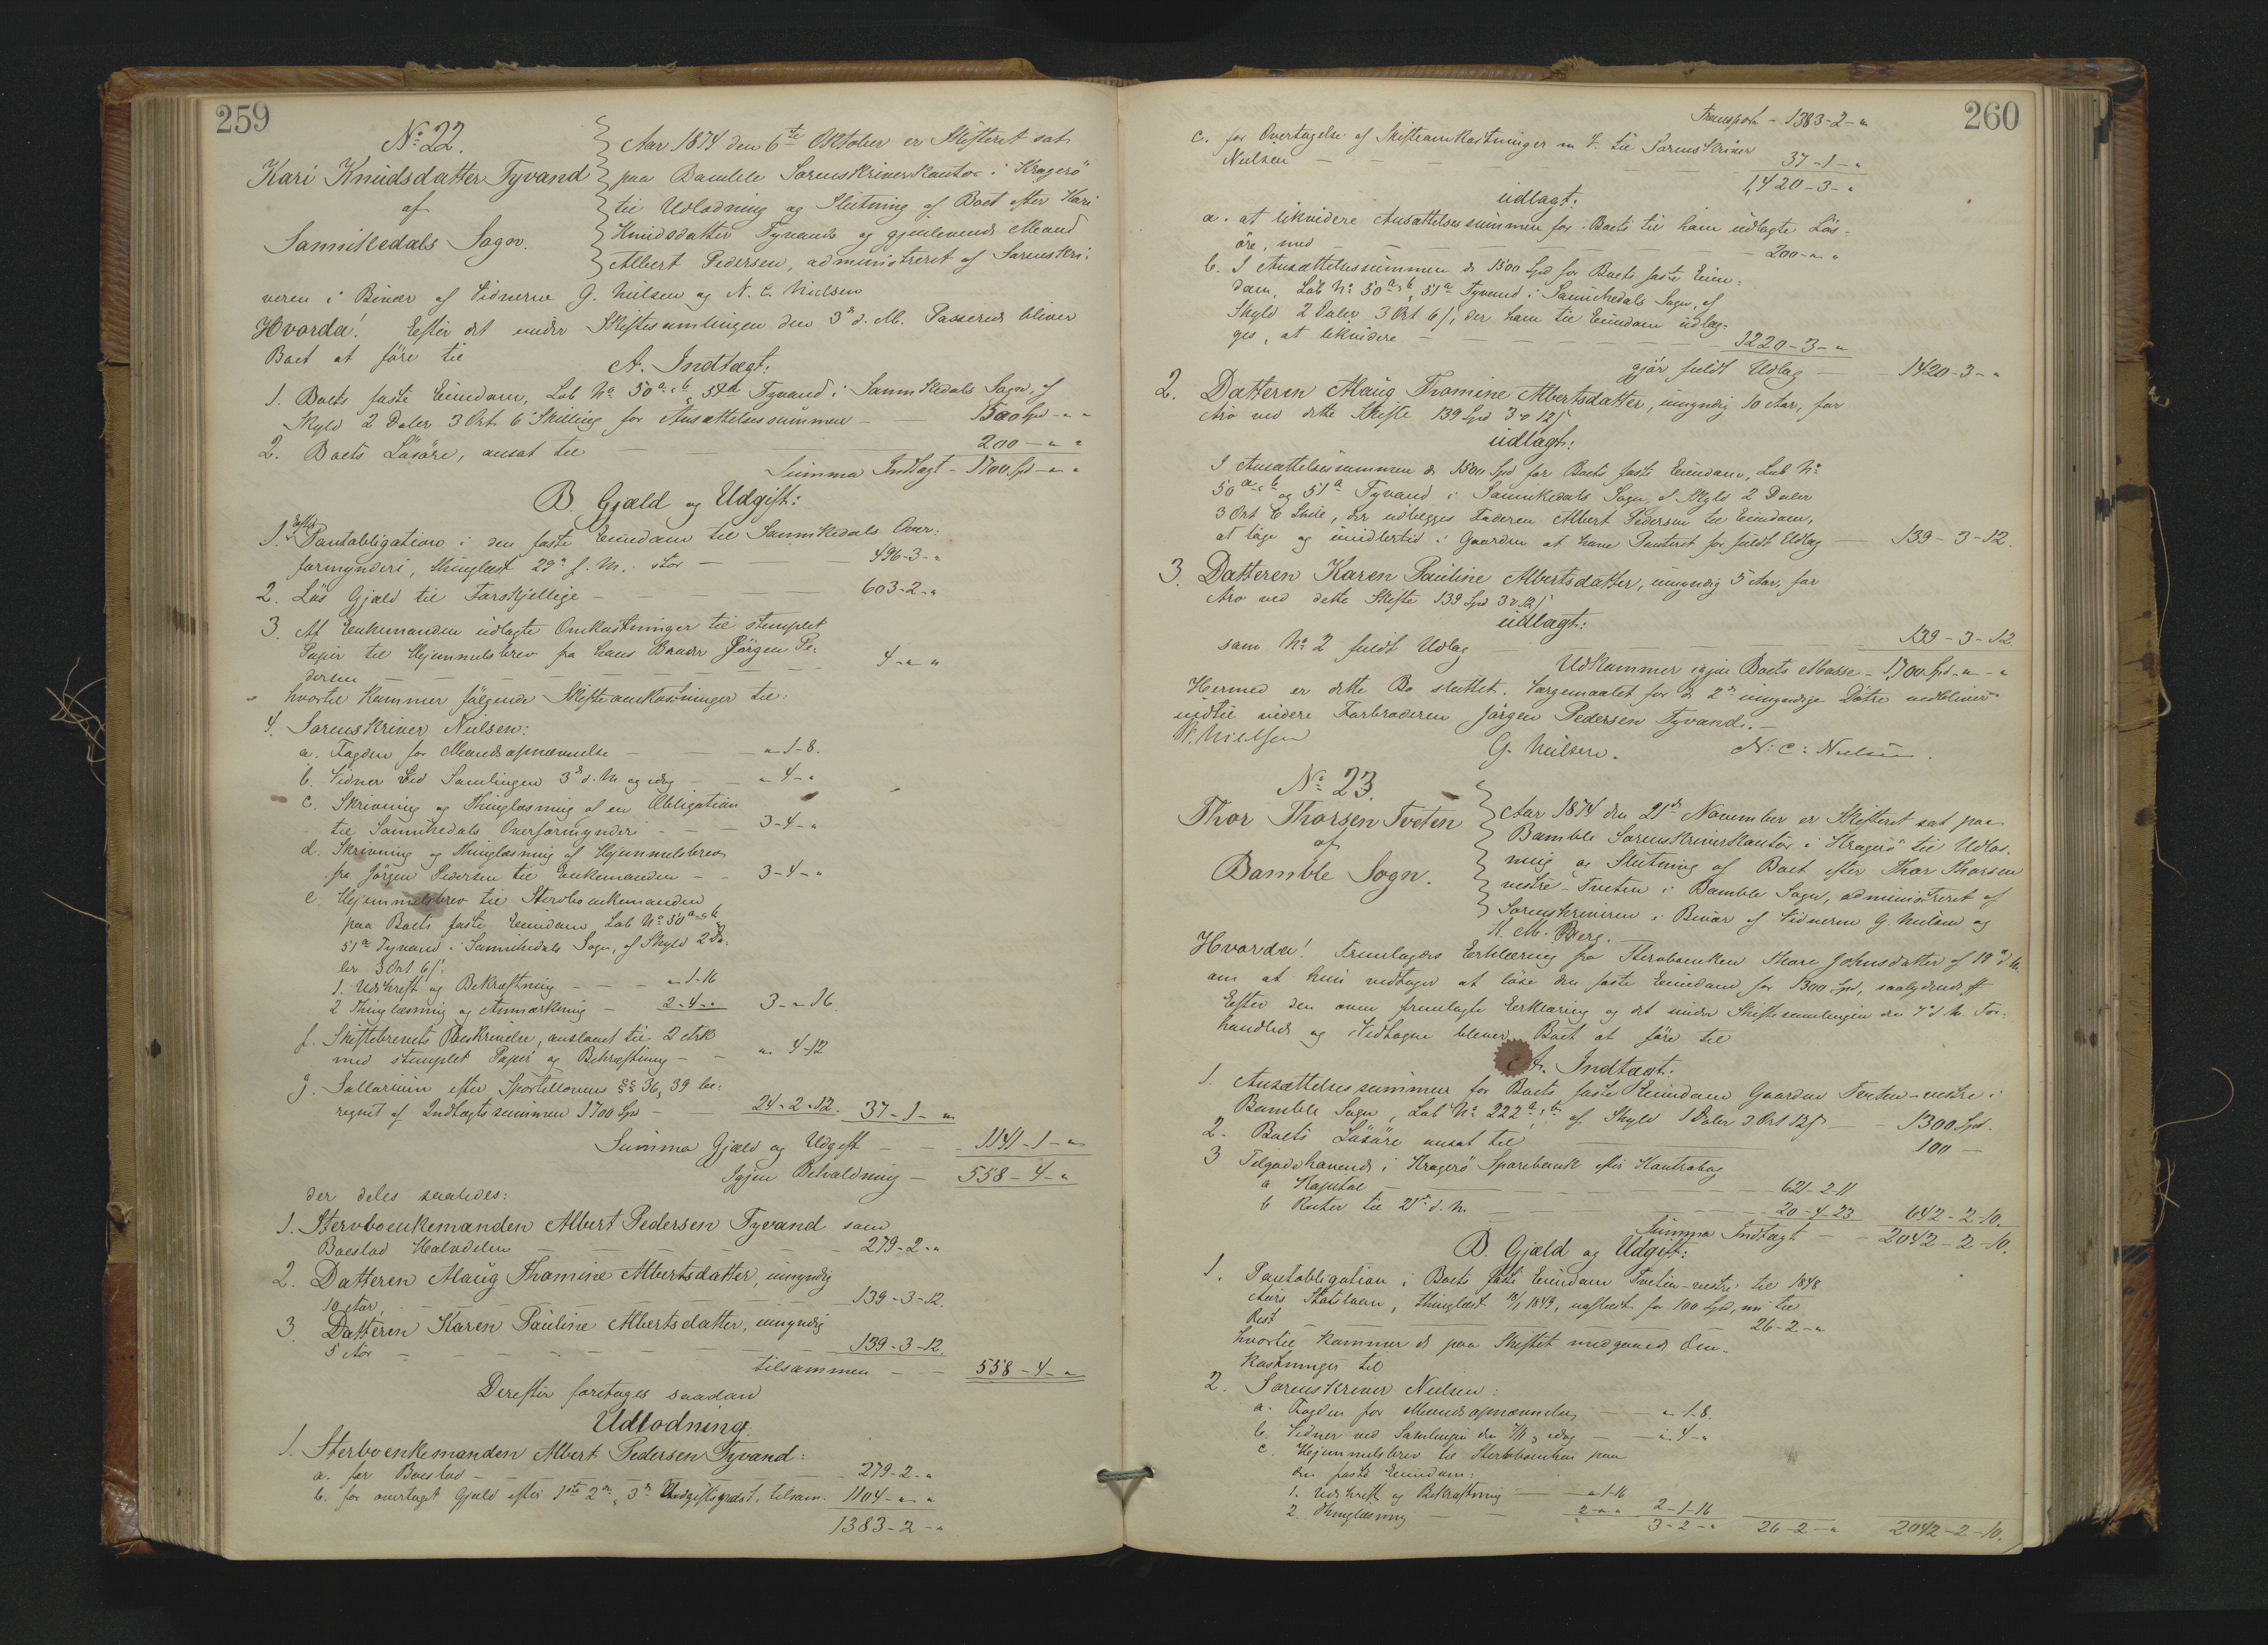 259
No 22.
Kari Knudsdatter Tyvand
af
Sannikedals Sogn.
Aar 1874 den 6te Oktober er Skifteret sat
paa Bamble Sorenskriverkontor i Kragerö
til Udlodning og Slutning af Boet efter Kari
Knudsdatter Tyvand og gjenlevende Mand
Albert Pedersen, administreret af Sorenskri-
veren i Bivær af Vidnerne G. Nielsen og N. C. Nielsen
Hvorda! Efter det under Skiftesamlingen den 3die d. M. Passerede bliver
Boet at före til
A. Indtægt:
1. Boets faste Eiendom, Löb No 50a, b, 51a Tyvand i Sannikedals Sogn, af
Skyld 2 Daler 3 Ort 6 Skilling for Ansættelsessummen - 1500 Spd - " "
2. Boets Lösöre, ansat til - 200 - " "
Summa Indtægt - 1700 Spd - " "
B. Gjæld og Udgift:
1. Efter Pantobligation i den faste Eiendom til Sannikedals Over-
formynderi, thinglæst 29de f. M. stor - 496-3-"
2. Lös Gjæld til Forskjellige - 603-2-"
3. Af Enkemanden udlagte Omkostninger til stemplet
Papir til Hjemmelsbrev fra hans Broder Jörgen Pe-
dersen - 4-"-"
hvortil kommer fölgende Skifteomkostninger til:
4. Sorenskriver Nielsen:
a. Fogden for Mændsopnævnelse - "-1-8.
b. Vidner ved Samlingen 3de d. M. og idag - "-4-"
c. Skrivning og Thinglæsning af en Obligation
til Sannikedals Overformynderi - 3-4-"
d. Skrivning og Thinglæsning af Hjemmelsbrev
fra Jörgen Pedersen til Enkemanden - 3-4-"
e. Hjemmelsbrev til Stervboenkemanden
paa Boets faste Eiendom Löb No 50a, b,
51a Tyvand i Sannikedals Sogn, af Skyld 2 Da-
ler 3 Ort 6 ß:
1. Udskrift og Bekræftning - "-1-16
2 Thinglæsning og Anmærkning - 2-4-" 3-"-16
f. Skiftebrevets Beskrivelse, anslaaet til 2 Ark
med stemplet Papir og Bekræftning - " 4-12
g. Sallarium efter Sportellovens §§ 36, 39 be-
regnet af Indtægtssummen 1700 Spd - 24-2-12. 37-1-"
Summa Gjæld og Udgift - 1141-1-"
Igjen Beholdning - 558-4-"
der deles saaledes:
1. Stervboenkemanden Albert Pedersen Tyvand som
Boeslod Halvdelen - 279-2-"
2. Datteren Maug Thomine Albertsdatter, umyndig
10 Aar, - 139-3-12.
3. Datteren Karen Pauline Albertsdatter, umyndig
5 Aar - 139-3-12.
tilsammen - 558-4-"
Derefter foretages saadan
Udlodning.
1. Sterboenkemanden Albert Pedersen Tyvand:
a. for Boeslod - 279-2-"
b. for overtaget Gjæld efter 1ste 2den, 3die Udgiftspost, tilsam. 1104-"-"
1383-2-"
260
Transport - 1383-2-"
c. for Overtagelse af Skifteomkostninger m. V. til Sorenskriver
Nielsen - 37-1-"
1,420-3-"
udlagt:
a. at likvidere Ansættelsessummen for Boets til ham udlagte Lös-
öre, med - 200-"-"
b. I Ansættelsessummen de 1500 Spd for Boets faste Eien-
dom, Löb No 50a, b, 51a Tyvand i Sannikedals Sogn, af
Skyld 2 Daler 3 Ort 6 ß, der ham til Eiendom udlæg-
ges, at likvidere - 1220-3-"
gjör fuldt Udlæg - 1420-3-"
2. Datteren Maug Thomine Albertsdatter, umyndig 10 Aar, for
Arv ved dette Skifte 139 Spd 3 o 12 ß
udlagt:
I Ansættelsessummen de 1500 Spd for Boets faste Eiendom, Löb No
50a, b og 51a Tyvand i Sannikedals Sogn, af Skyld 2 Daler
3 Ort 6 Skill, der udlægges Faderen Albert Pedersen til Eiendom,
at tage og imidlertid i Gaarden at have Panteret for fuldt Udlæg - 139-3-12.
3. Datteren Karen Pauline Albertsdatter, umyndig 5 Aar, for
Arv ved dette Skifte 139 Spd 3 o 12 ß
udlagt:
som No 2 fuldt Udlæg - 139-3-12
Udkommer igjen Boets Masse - 1,700 Spd - " - "
Hermed er dette Bo sluttet. Værgemaalet for de 2de umyndige Dötre vedbliver
indtil videre Farbroderen Jörgen Pedersen Tyvand. -
Nielsen
G. Nielsen. N. C. Nielsen.
No 23.
Thor Thorsen Tveten
af
Bamble Sogn.
Aar 1874 den 21de November er Skifteret sat paa
Bamble Sorenskriverkontor i Kragerö til Udlod-
ning og Slutning af Boet efter Thor Thorsen
vestre-Tveten i Bamble Sogn, administreret af
Sorenskriveren i Bivær af Vidnerne G. Nielsen og
H. M. Berg. -
Hvorda! Fremlagdes Erklæring fra Stervboenken Mari Johnsdatter af 10de d. M.
om at hun vedtager at löse den faste Eiendom for 1300 Spd, saalydende #
Efter den oven fremlagte Erklæring og det under Skiftesamlingen den 7de d. M. For-
handlede og Vedtagne blever Boet at före til
A. Indtægt:
1. Ansættelsessummen for Boets faste Eiendom Gaarden Tveten-vestre i
Bamble Sogn, Löb No 222a, b, af Skyld 1 Daler 3 Ort 12 ß - 1300 Spd.
2. Boets Lösöre ansat til - 100 -
3 Tilgodehavende i Kragerö Sparebank efter Kontrabog
a Kapital - 621-2-11
b Renter til 21de d. M. - 20-4-23 642-2-10.
Summa Indtægt - 2042-2-10.
B. Gjæld og Udgift:
1. Pantobligation i Boets faste Eiendom Tveten-vestre til 1848
Aars Statslaan, thinglæst 13/1 1849, uaflæst for 100 Spd, nu til
Rest - 26-2-"
hvortil kommer de paa Skiftet medgaaede Om-
kostninger til
2. Sorenskriver Nielsen:
a. Fogden for Mændsopnævnelse - "-1-8.
b. Vidner ved Samlingen den 7/11 og idag - "-4-"
c. Hjemmelsbrev til Stervboenken paa
den faste Eiendom:
1. Udskrift og Bekræftning - "-1-16
2. Thinglæsning - 2-"-" 2-1-16
3-2-" 26-2-" 2042-2-10.